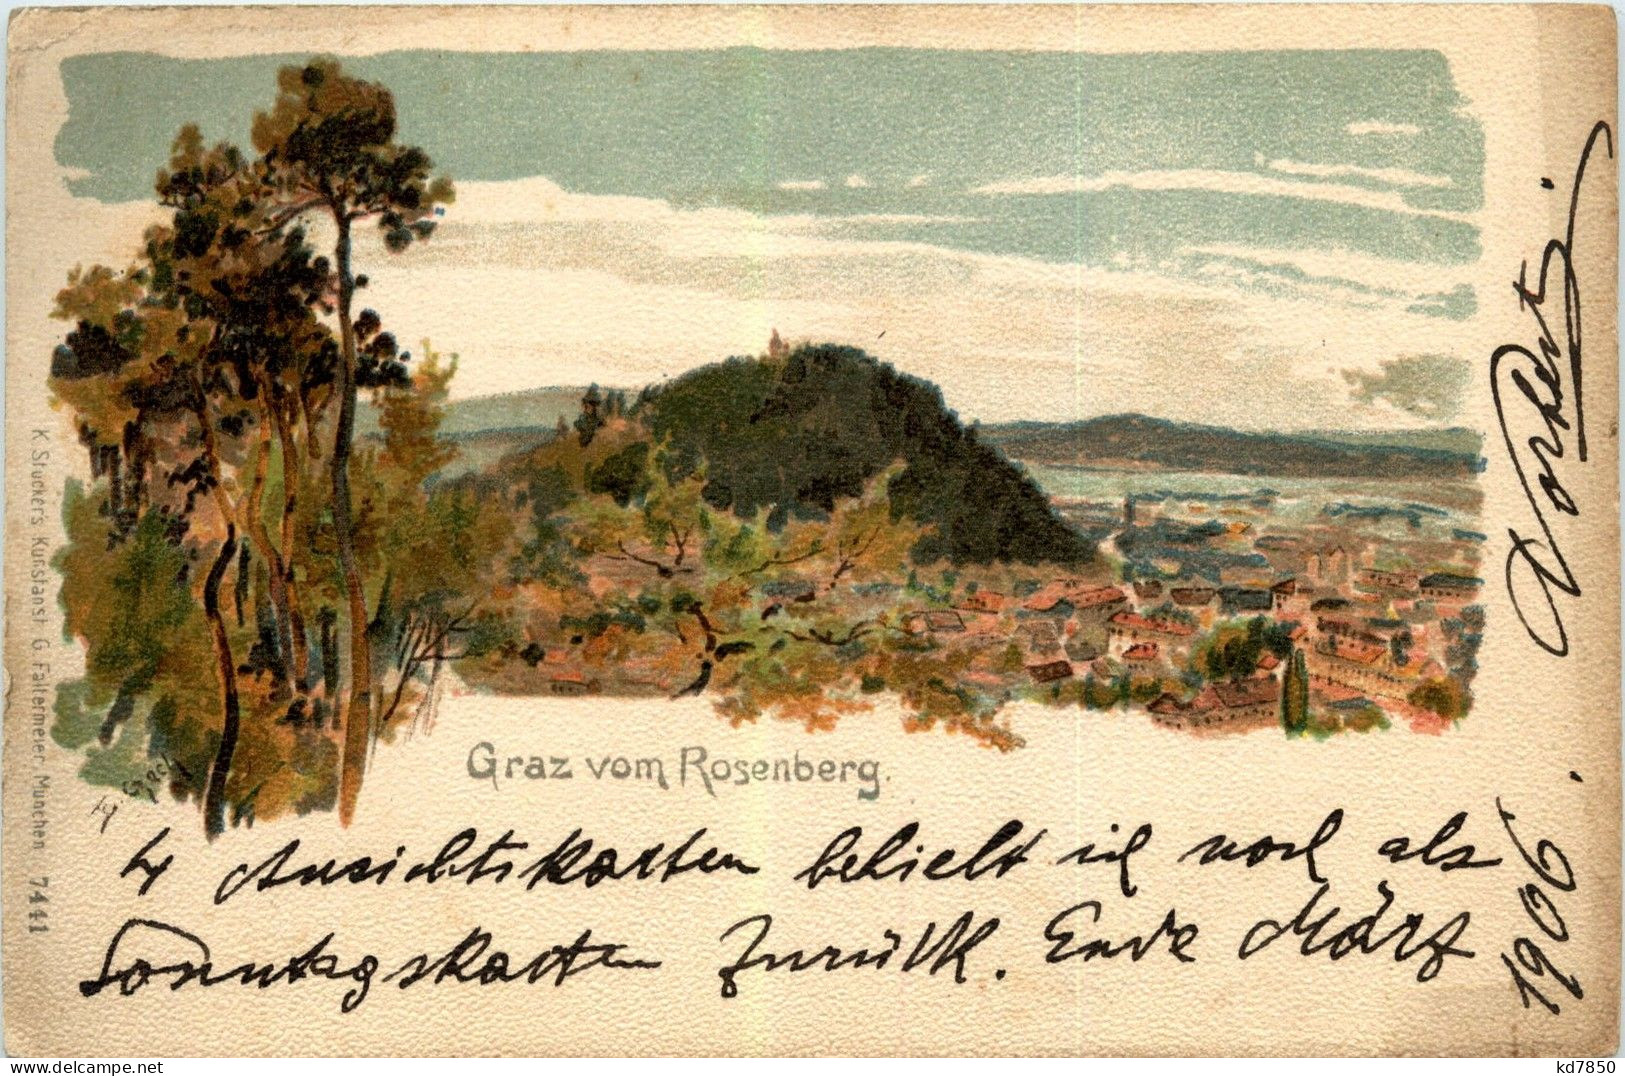 Graz vom Rosenberg.
4 Ansichtskarten behielt ich noch als
Sonntagskarten zurück. Ende März
1906. Norbert.
K. Stuckers Kunstanst. G. Faltermeier München 7441
kd7850